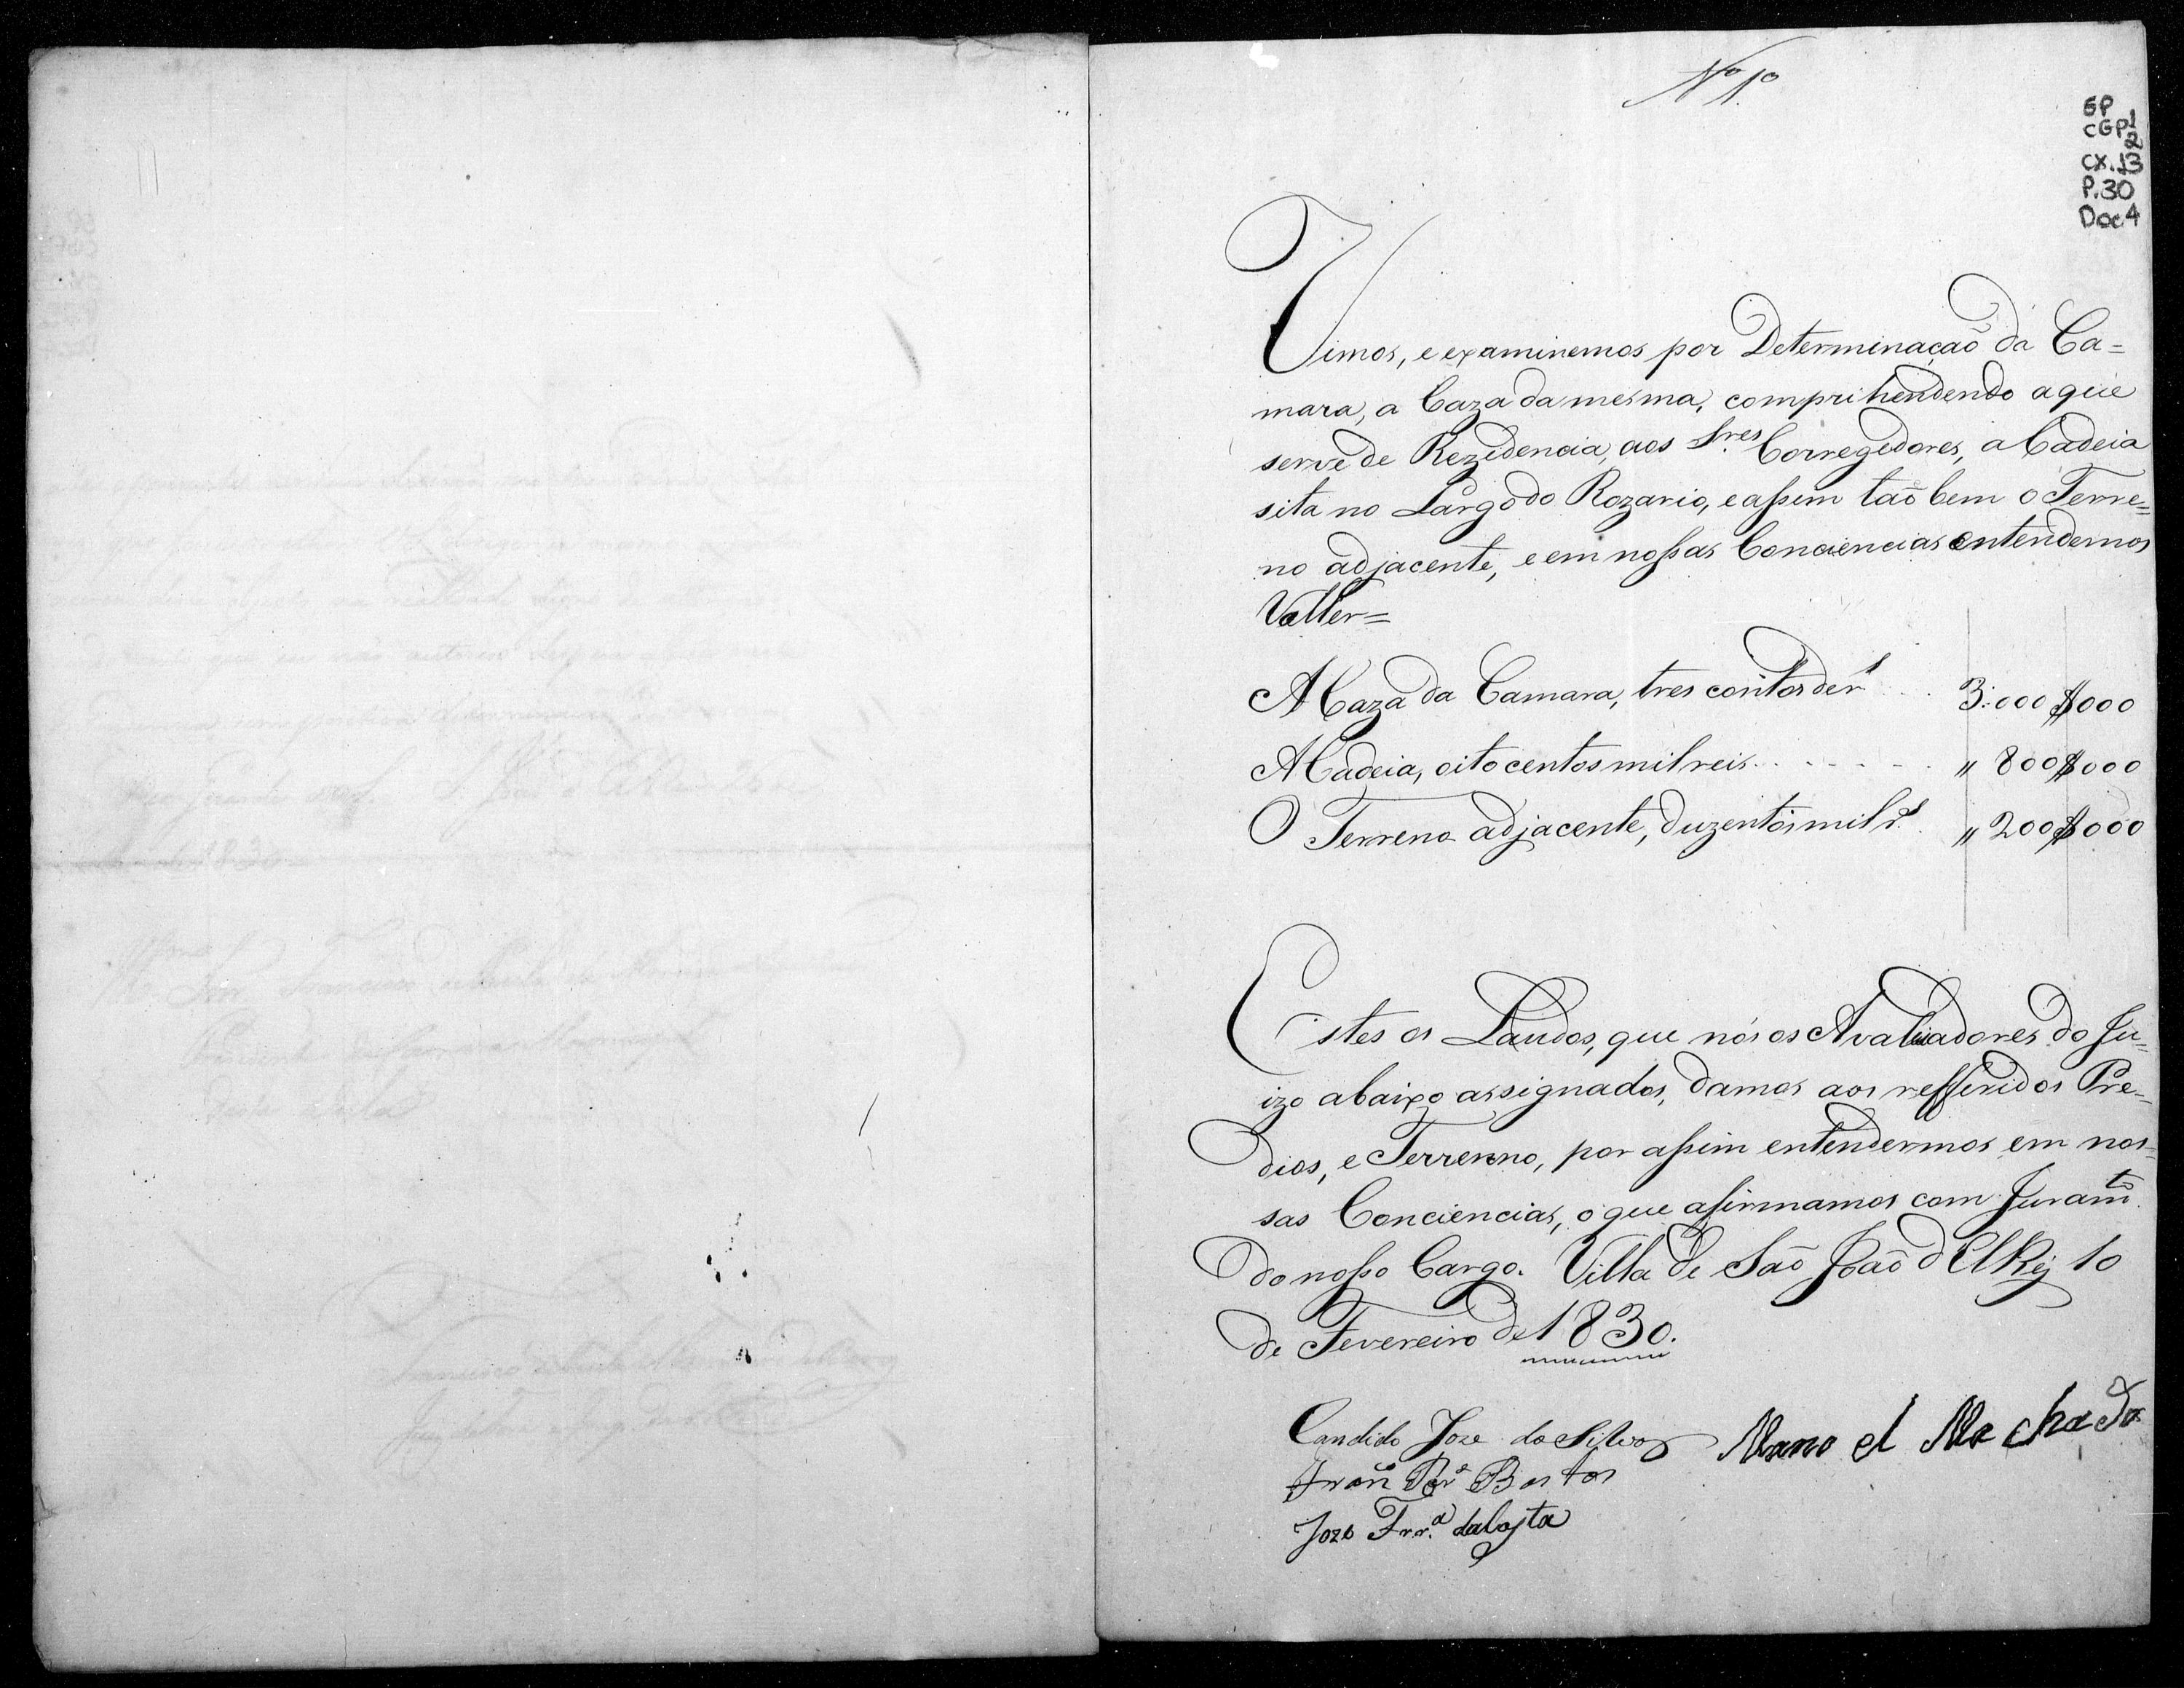 Nº 1º
GP
CGP 1
2
CX. 13
P. 30
Doc 4
Vimos, e examinemos por Determinaçaõ da Ca=
mara, a Caza da mesma, comprihendendo a que
serve de Rezidencia, aos Sres. Corregedores, a Cadeia
sita no Largo do Rozario, e assim taõ bem o Terre=
no adjacente, e em nossas Conciencias entendemos
Valler=
A Caza da Camara, tres contos de rs 3:000$000
A Cadeia, oito centos mil reis " 800$000
O Terreno adjacente, duzentos mil rs. " 200$000
Estes os Laudos, que nós os Avaliadores do Ju=
izo abaixo assignados, damos aos refferidos Pre=
dios, e Terrenno, por assim entendermos em nos=
sas Conciencias, o que afirmamos com Juramto.
do nosso Cargo. Villa de Saõ Joaõ d'ElRej 10
de Fevereiro de 1830.
Candido Joze da Silva Manoel Machado
Franco Pra Bastos
Joze Frra. da Costa